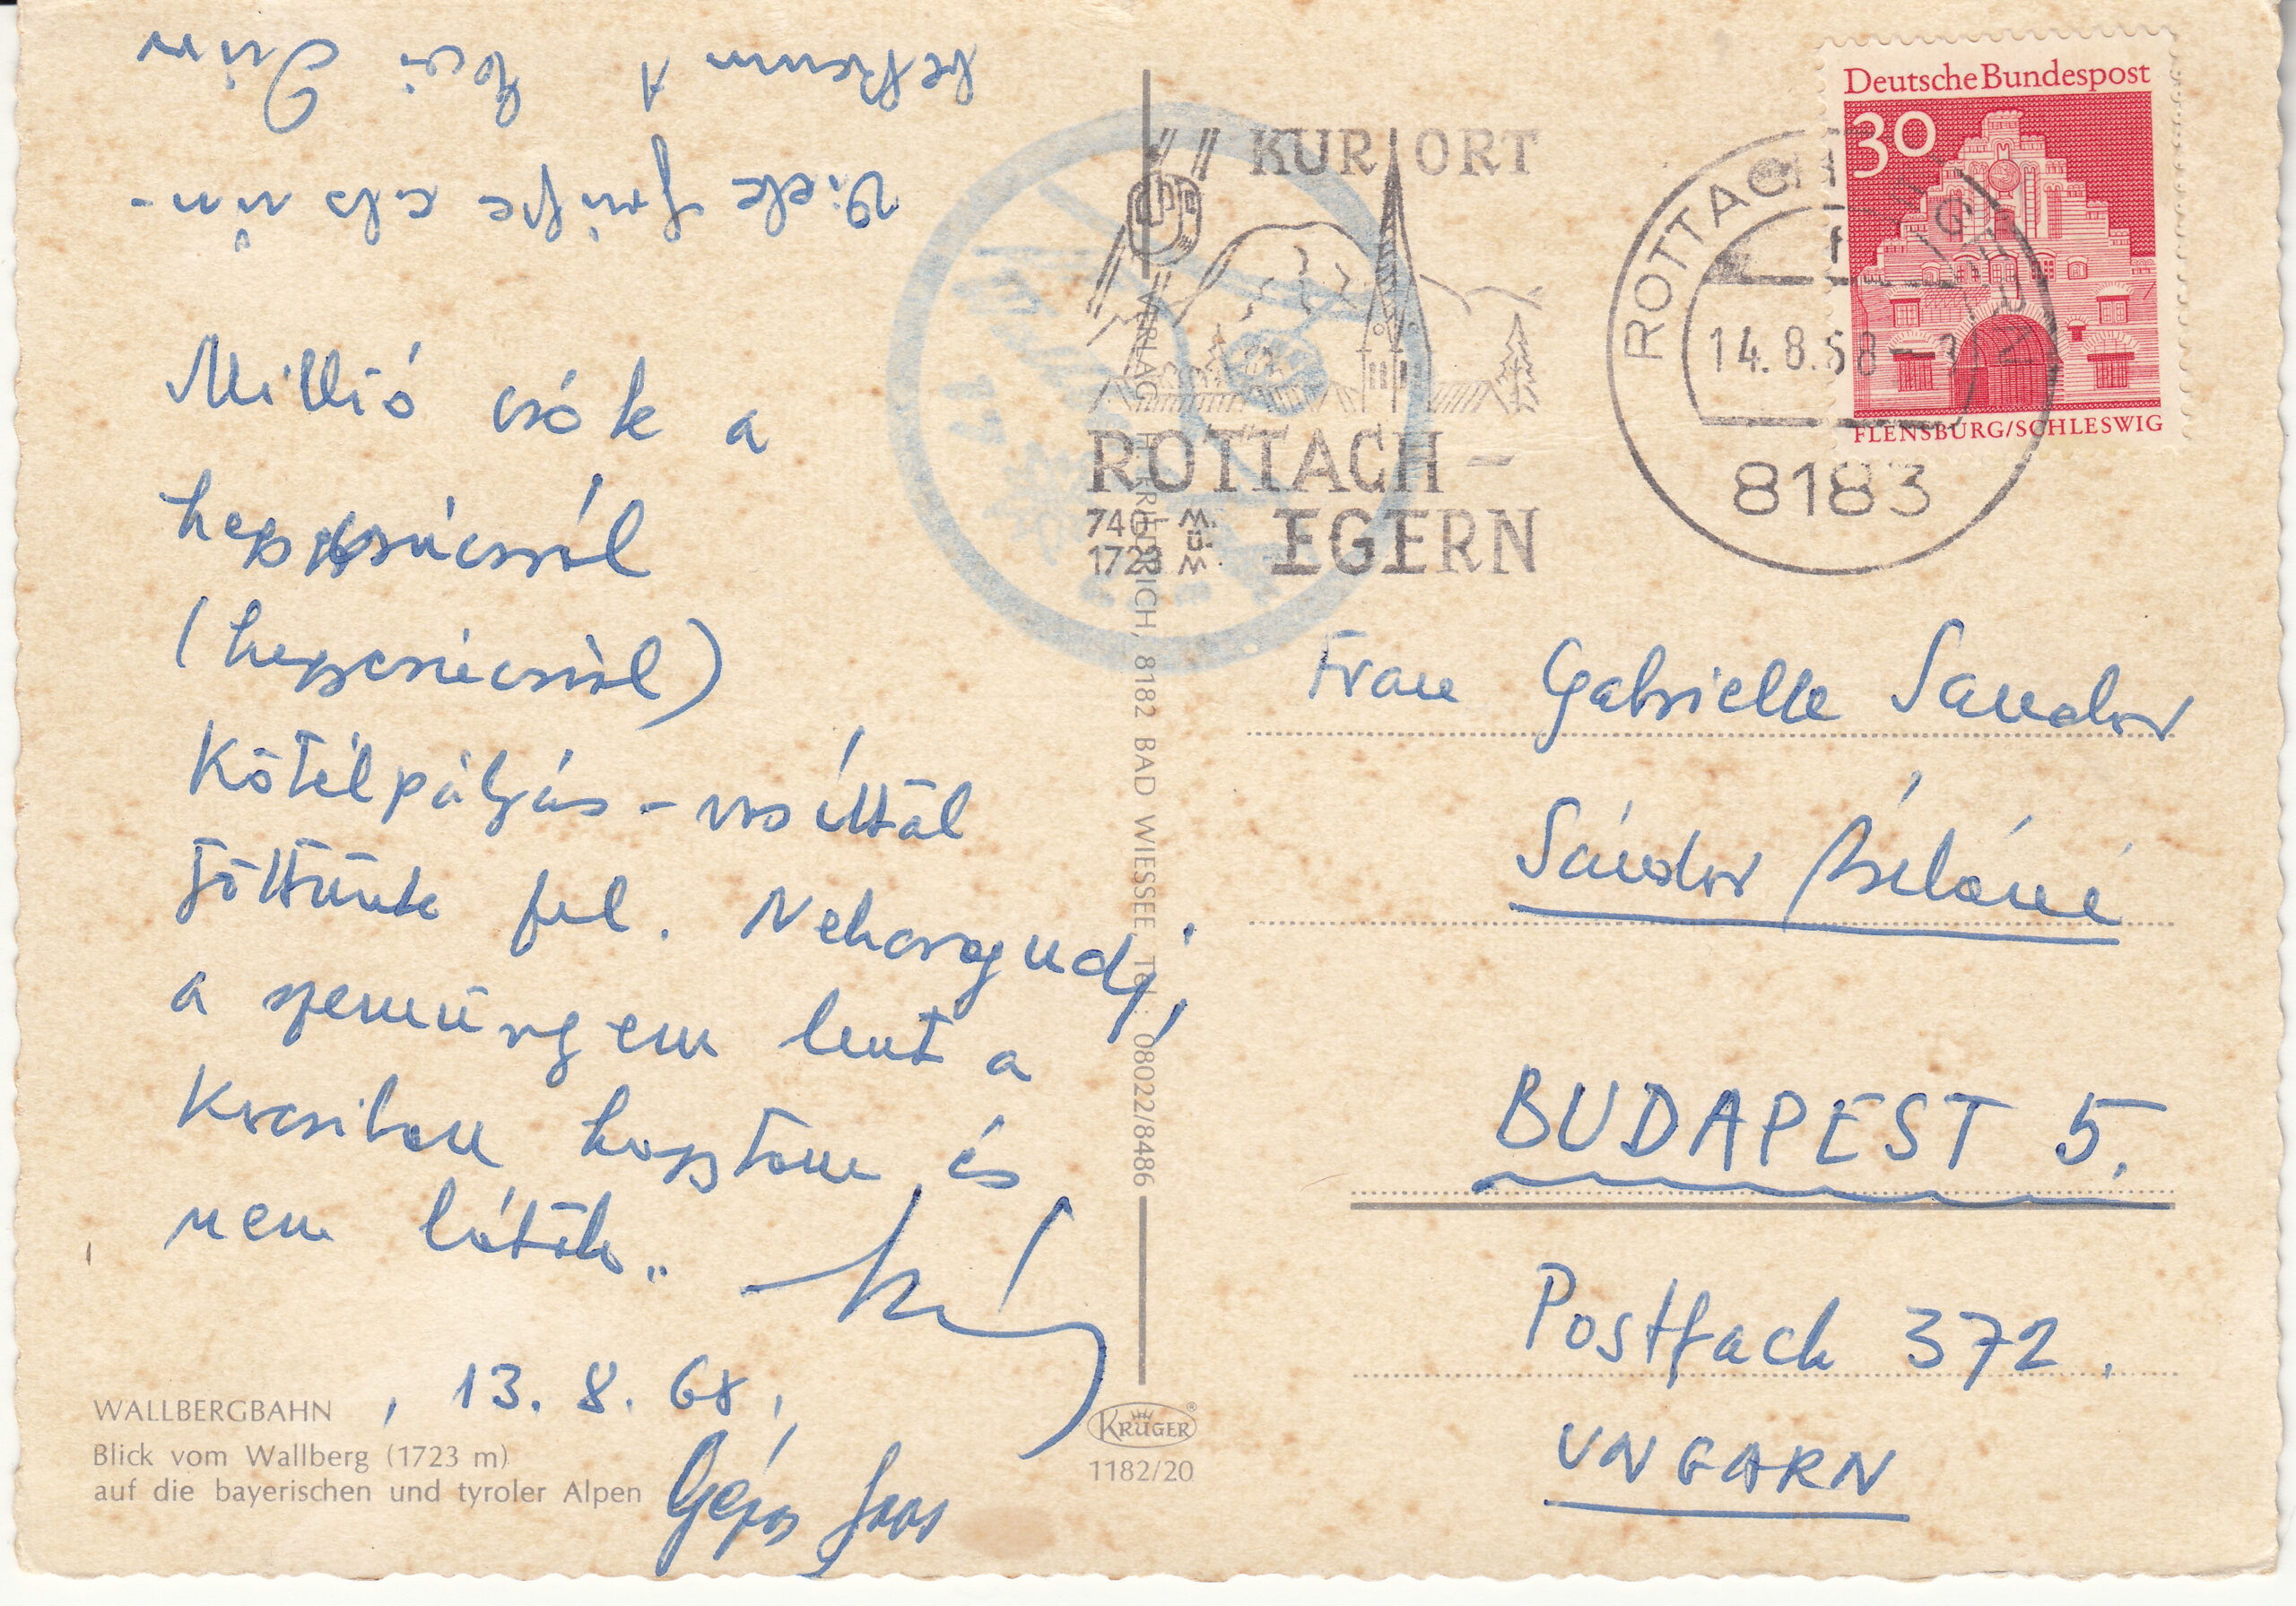 Millió csók a
hegycsúcsról
(hegycsúcsról)
Kötélpályás-vasúttal
jöttünk fel. Neharagudj,
a szemüvegem lent a
Kocsiban hagytam és
nem látok..
13. 8. 68.
Viele Grüße als un-
bekannt
WALLBERGBAHN
Blick vom Wallberg (1723 m)
auf die bayerischen und tyroler Alpen
VERLAG H. KRIEGLRICH, 8182 BAD WIESSEE, Tel. 08022/8486
KRÜGER®
1182/20
KURORT
ROTTACH-
740 M.
1723 ü.M.
EGERN
ROTTACH-EGERN
14.8.68-
8183
Deutsche Bundespost
30
FLENSBURG/SCHLESWIG
Frau Gabrielle Sandor
Sándor Béláné
BUDAPEST 5.
Postfach 372.
UNGARN